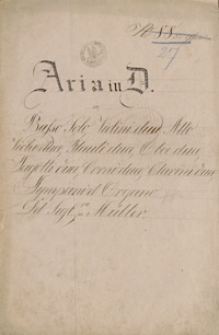 88.
27
Aria in D.
Basso Solo Violini due Alto
Viola Due, Flauti due, Oboi due,
Fagotti due, Corni due, Clarini due
Tympani et Organo
Del Sigl. Müller.